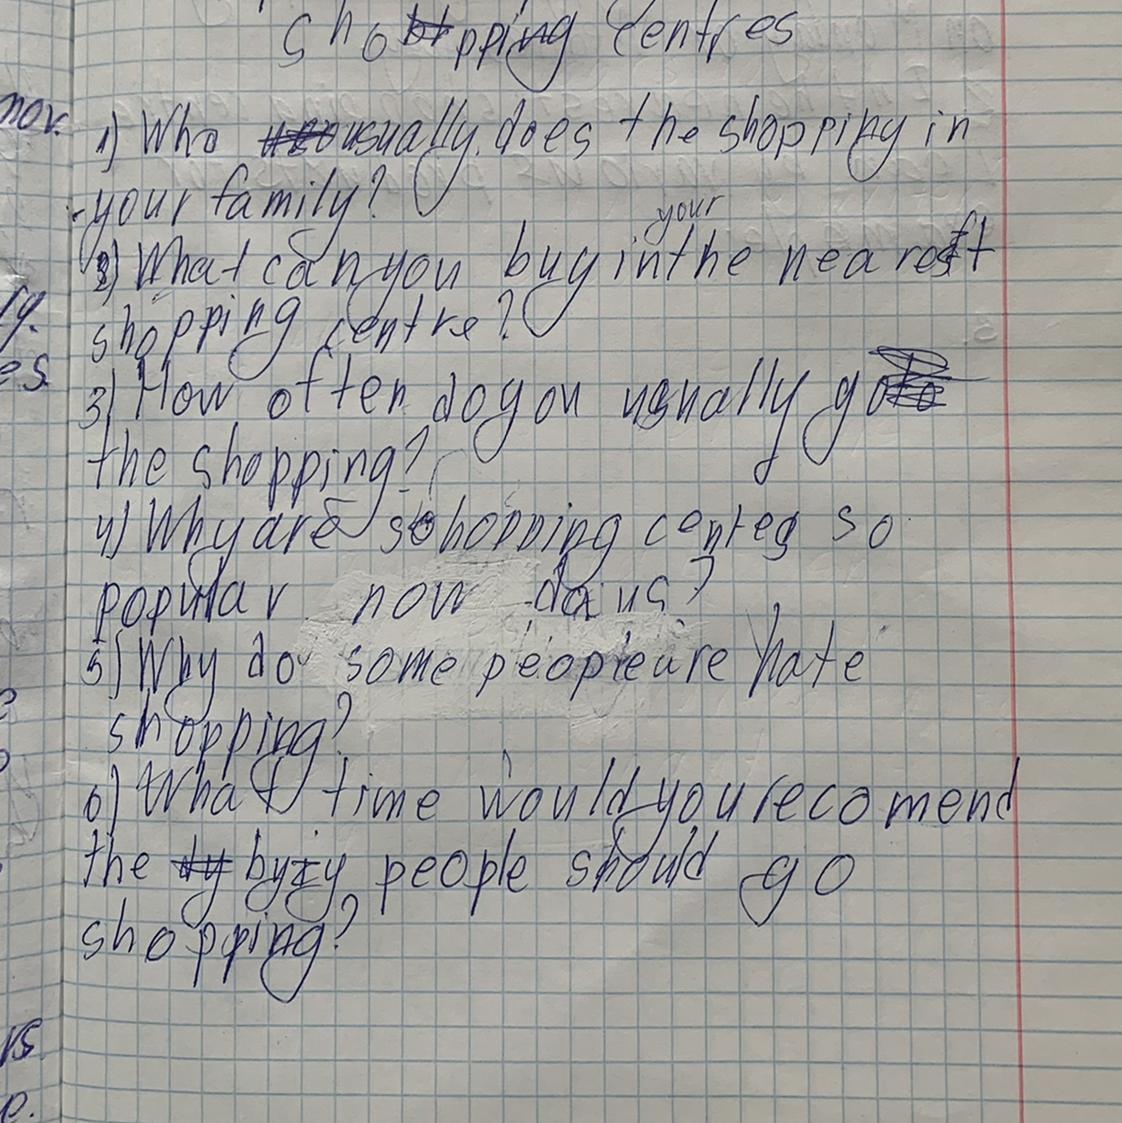 Shopping Centres
nov. 1) Who usually does the shopping in
your family?
your
2) What can you buy in the nearest
shopping centre?
3) How often do you usually go
es. the shopping?
4) Why are shopping centes so
popular now days?
5) Why do some people are hate
shopping?
6) What time would you recomend
the byzy people should go
shopping?
rs
e.